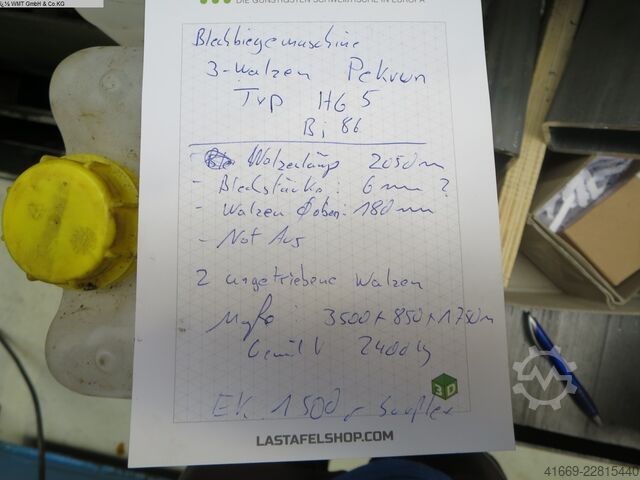 ï¿¼ WMT GmbH & Co.KG
DIE GÜNSTIGSTEN SCHWEISSTISCHE IN EUROPA
Blechbiegemaschine
3-Walzen Pekrun
Typ HG 5
Bj 86
Walzenlänge 2050 m
- Blechstärke: 6 mm ?
- Walzen Ø oben: 180 mm
- Not Aus
2 angetriebene Walzen
Maße: 3500 x 850 x 1750 m
Gewicht 2400 kg
EK. 1500
3D
LASTAFELSHOP.COM
41669-22815440